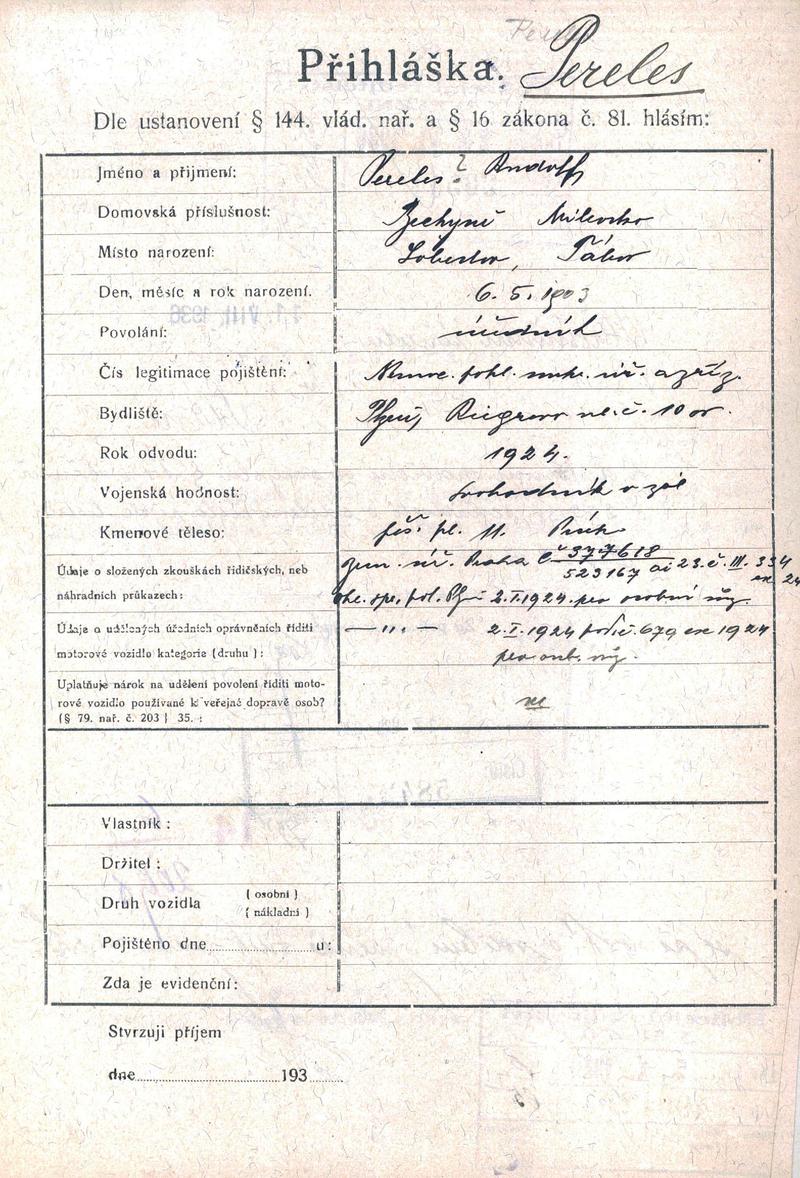 Přihláška. Pereles
Dle ustanovení § 144. vlád. nař. a § 16 zákona č. 81. hlásím:
Jméno a přijmení: Pereles Rudolf
Domovská příslušnost: Bechyně Milevsko
Místo narození: Soběslav, Tábor
Den, měsíc a rok narození. 6. 5. 1903
Povolání: úředník
Čís legitimace pojištění: Nemoc. pokl. úř. a zříz.
Bydliště: Plzeň, Riegrova ul. č. 10
Rok odvodu: 1924.
Vojenská hodnost: svobodník v zál
Kmenové těleso: pěš. pl. 11. Písek
Údaje o složených zkouškách řidičských, neb
náhradních průkazech:
zem. úř. Praha č 377618
523167 ai 23. č. III. 334
ex 24
pol. Plzeň 2.I.1924. pro osobní
Údaje o udělených úředních oprávněních říditi
motorové vozidlo kategorie (druhu):
— „ — 2.I.1924 pod č. 679 ex 1924
pro osob.
Uplatňuje nárok na udělení povolení říditi moto-
rové vozidlo používané k veřejné dopravě osob?
(§ 79. nař. č. 203 | 35. : ne
Vlastník :
Držitel :
Druh vozidla ( osobní )
( nákladní )
Pojištěno dne u:
Zda je evidenční:
Stvrzuji příjem
dne 193